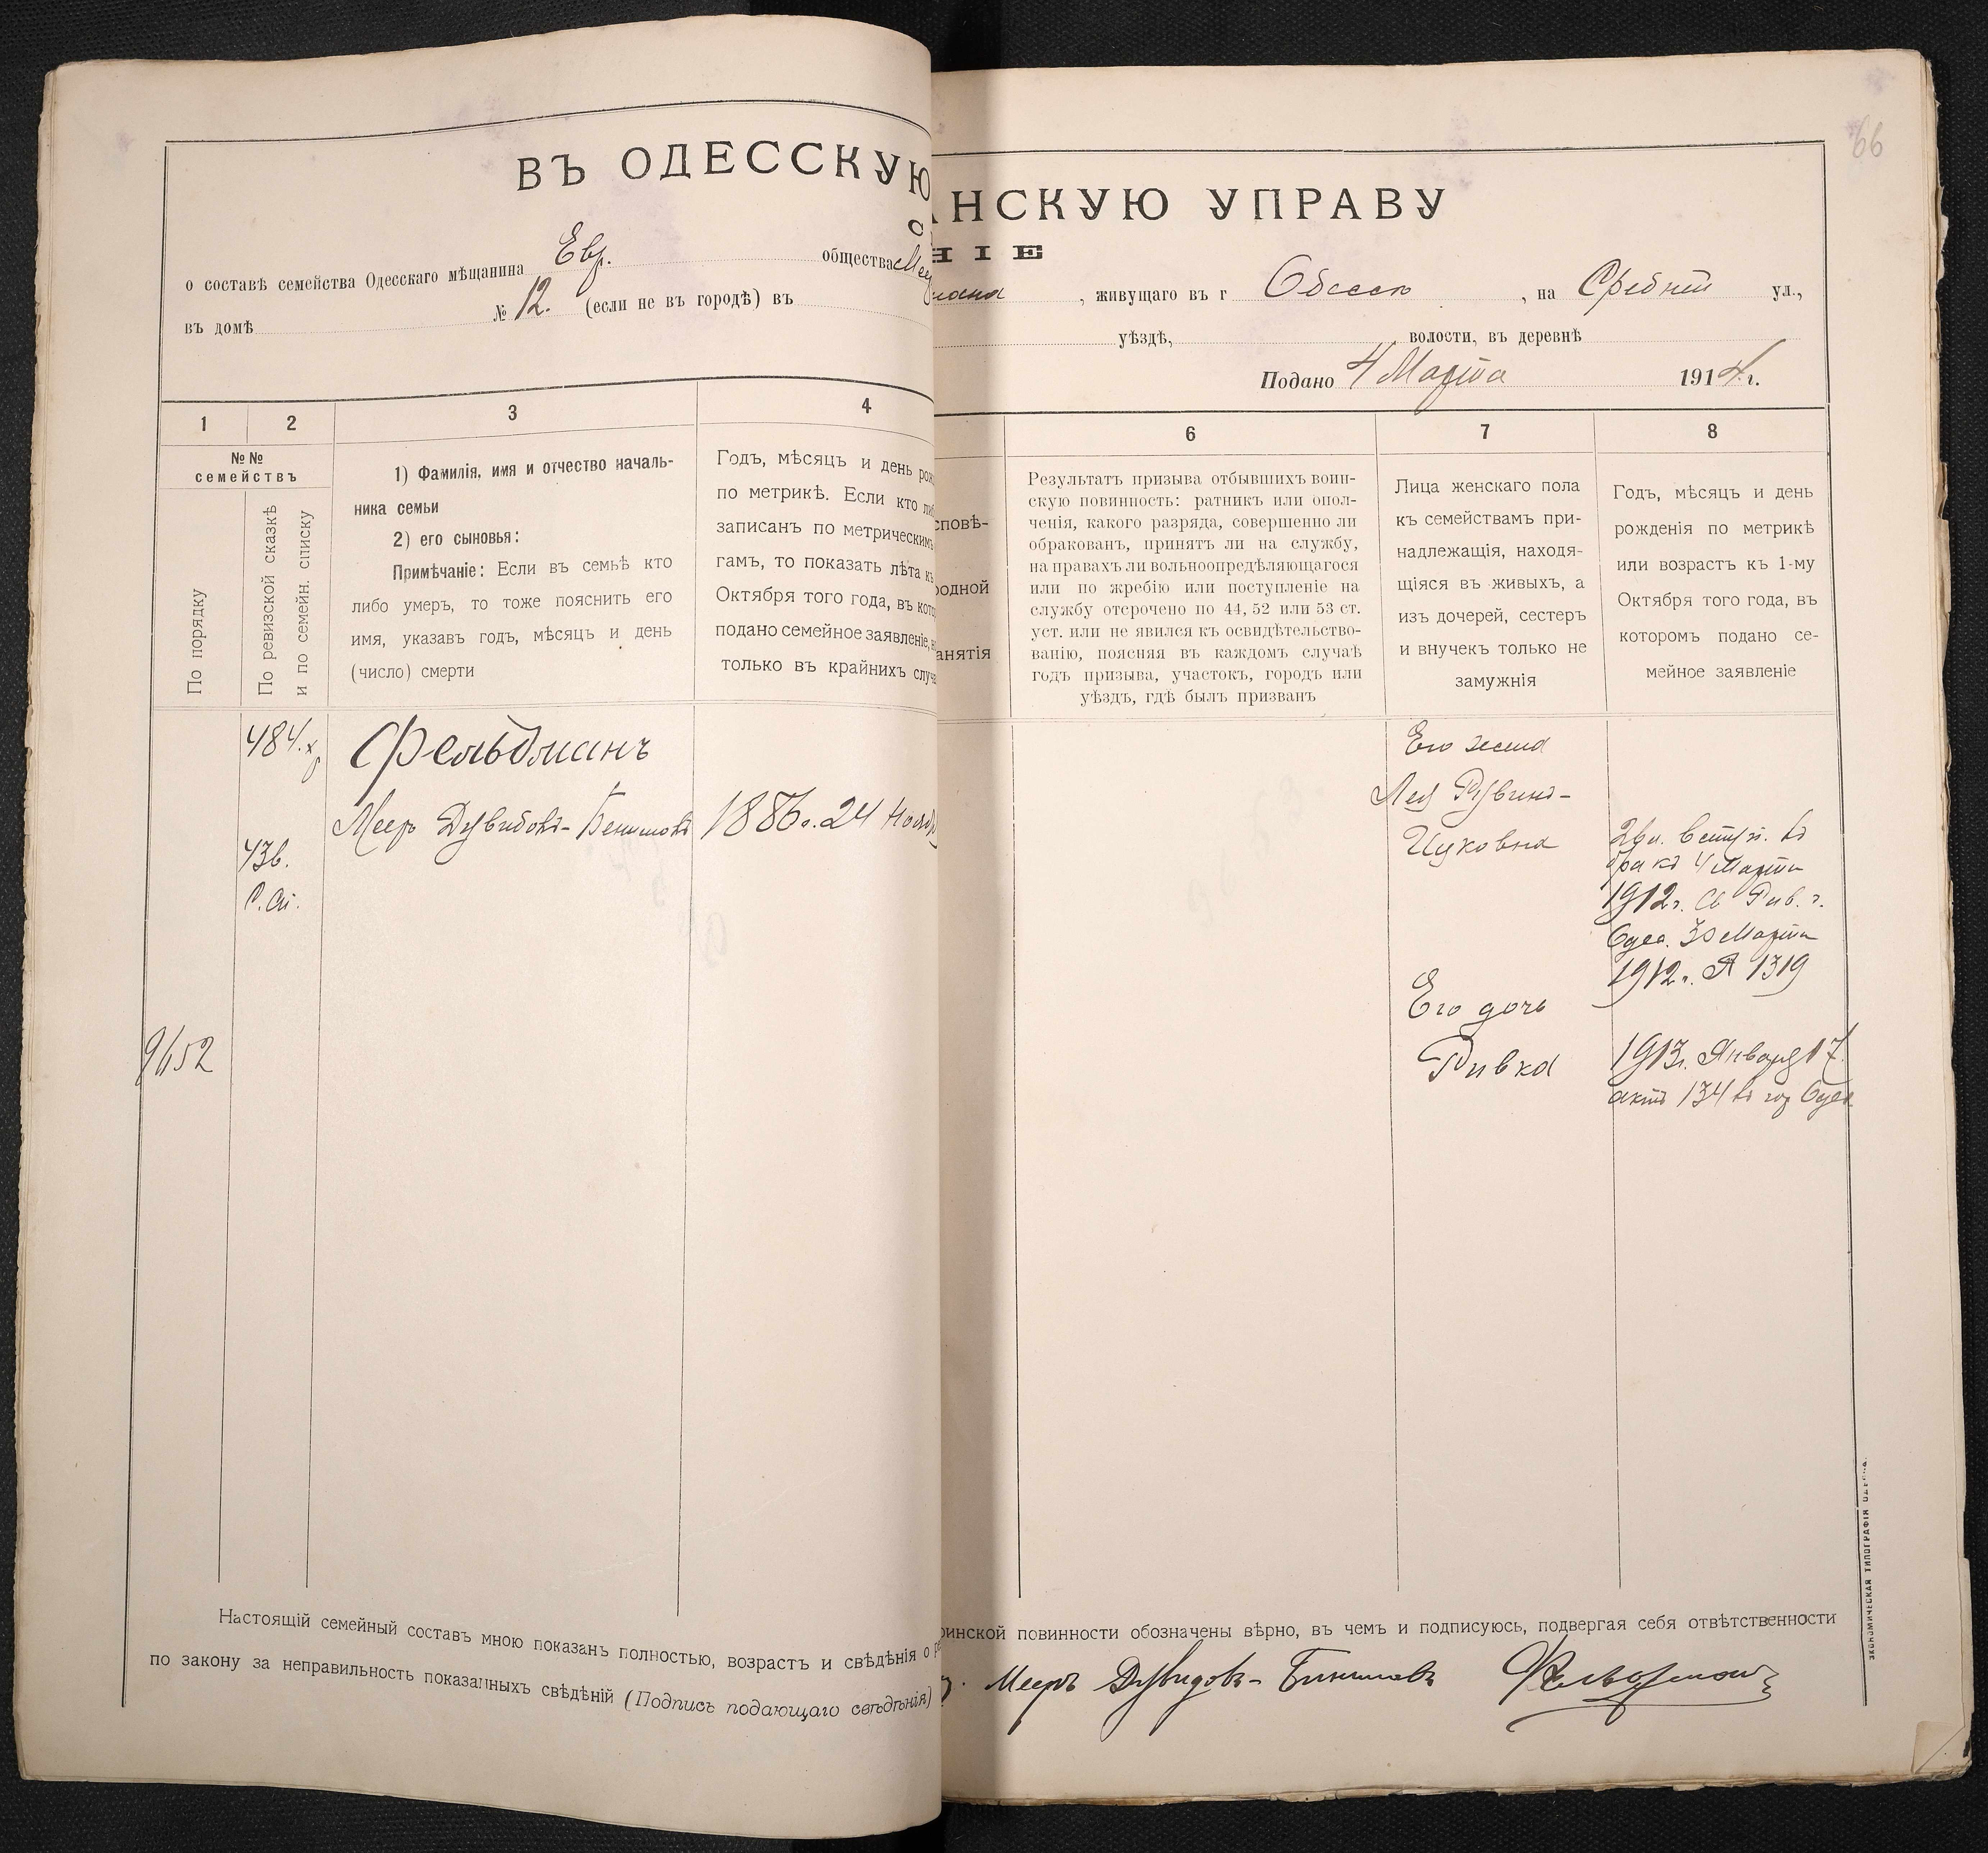 66
ВЪ ОДЕССКУЮ
АНСКУЮ УПРАВУ
НІЕ
о составѣ семейства Одесскаго мѣщанина Евр. общества
, живущаго въ г Одессе , на Средней ул.,
въ домѣ № 12. (если не въ городѣ) въ
уѣздѣ, волости, въ деревнѣ
Подано 4 Марта 1914 г.
1 2 3 4
№№
семействъ
По порядку
По ревизской сказкѣ
и по семейн. списку
1) Фамилія, имя и отчество началь-
ника семьи
2) его сыновья:
Примѣчаніе: Если въ семьѣ кто
либо умеръ, то тоже пояснить его
имя, указавъ годъ, мѣсяцъ и день
(число) смерти
Годъ, мѣсяцъ и день рож
по метрикѣ. Если кто либ
записанъ по метрическимъ
гамъ, то показать лѣта къ
Октября того года, въ кото
подано семейное заявленіе, н
только въ крайнихъ случа
сповѣ-
родной
анятія
6 7 8
Результатъ призыва отбывшихъ воин-
скую повинность: ратникъ или опол-
ченія, какого разряда, совершенно ли
обракованъ, принятъ ли на службу,
на правахъ ли вольноопредѣляющагося
или по жребію или поступленіе на
службу отсрочено по 44, 52 или 53 ст.
уст. или не явился къ освидѣтельство-
ванію, поясняя въ каждомъ случаѣ
годъ призыва, участокъ, городъ или
уѣздъ, гдѣ былъ призванъ
Лица женскаго пола
къ семействамъ при-
надлежащія, находя-
щіяся въ живыхъ, а
изъ дочерей, сестеръ
и внучекъ только не
замужнія
Годъ, мѣсяцъ и день
рожденія по метрикѣ
или возрастъ къ 1-му
Октября того года, въ
которомъ подано се-
мейное заявленіе
484.
Фельдманъ
Мееръ Дувидовъ-Бенишовъ 1886 г. 24 Ноябр
436.
9652
Его жена
Лея Рувинъ-
Ицковна
вступ. въ
бракъ 4 Марта
1912 г. Св Рав. г.
Одес. 30 Марта
1912 г. № 1319
Его дочь
Ривка
1913 г. Января 17.
актъ 134 въ гор Одес
Настоящій семейный составъ мною показанъ полностью, возрастъ и свѣдѣнія о
оинской повинности обозначены вѣрно, въ чемъ и подписуюсь, подвергая себя отвѣтственности
по закону за неправильность показанныхъ свѣдѣній (Подпись подающаго свѣдѣнія)
Мееръ Дувидовъ-Бинишовъ Фельдманъ
ЭКОНОМИЧЕСКАЯ ТИПОГРАФІЯ